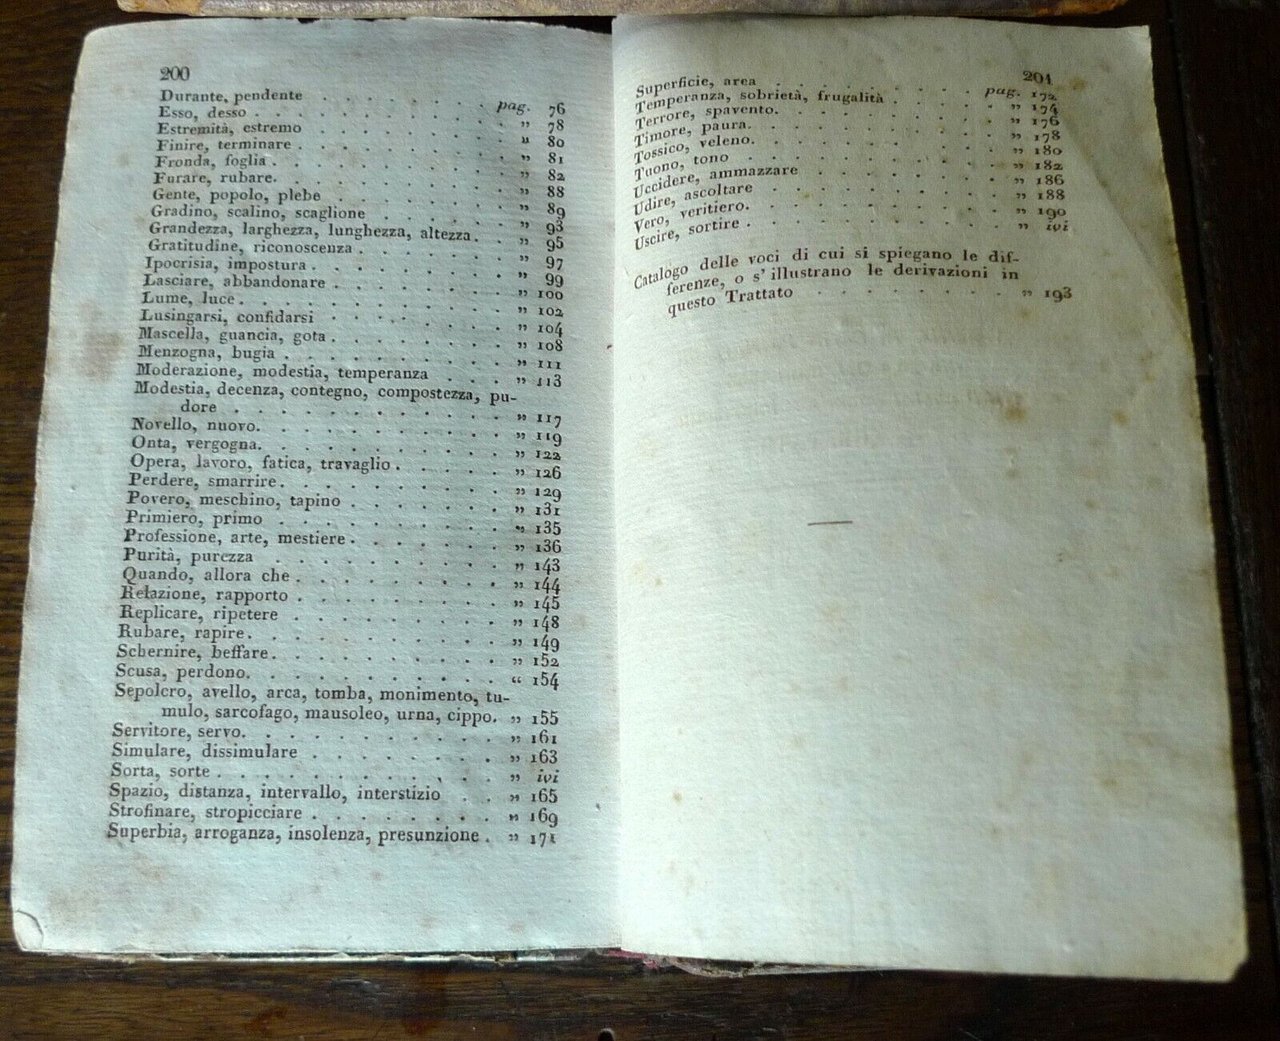 200
Durante, pendente . . . . . . . . pag. 76
Esso, desso . . . . . . . . . . . „ 78
Estremità, estremo . . . . . . . . “ 80
Finire, terminare . . . . . . . . . „ 81
Fronda, foglia . . . . . . . . . . „ 82
Furare, rubare. . . . . . . . . . . „ 88
Gente, popolo, plebe . . . . . . . . „ 89
Gradino, scalino, scaglione . . . . . . „ 93
Grandezza, larghezza, lunghezza, altezza. . „ 95
Gratitudine, riconoscenza . . . . . . . „ 97
Ipocrisia, impostura . . . . . . . . . „ 99
Lasciare, abbandonare . . . . . . . . „ 100
Lume, luce . . . . . . . . . . . . „ 102
Lusingarsi, confidarsi . . . . . . . . „ 104
Mascella, guancia, gota . . . . . . . . „ 108
Menzogna, bugia . . . . . . . . . . „ 111
Moderazione, modestia, temperanza . . . „ 113
Modestia, decenza, contegno, compostezza, pu-
dore . . . . . . . . . . . . „ 117
Novello, nuovo. . . . . . . . . . . „ 119
Onta, vergogna. . . . . . . . . . . „ 122
Opera, lavoro, fatica, travaglio . . . . . „ 126
Perdere, smarrire . . . . . . . . . . „ 129
Povero, meschino, tapino . . . . . . . „ 131
Primiero, primo . . . . . . . . . . „ 135
Professione, arte, mestiere . . . . . . . „ 136
Purità, purezza . . . . . . . . . . „ 143
Quando, allora che . . . . . . . . . „ 144
Relazione, rapporto . . . . . . . . . „ 145
Replicare, ripetere . . . . . . . . . „ 148
Rubare, rapire. . . . . . . . . . . „ 149
Schernire, beffare. . . . . . . . . . „ 152
Scusa, perdono. . . . . . . . . . . “ 154
Sepolcro, avello, arca, tomba, monimento, tu-
mulo, sarcofago, mausoleo, urna, cippo. „ 155
Servitore, servo. . . . . . . . . . . „ 161
Simulare, dissimulare . . . . . . . . „ 163
Sorta, sorte . . . . . . . . . . . . „ ivi
Spazio, distanza, intervallo, interstizio . . „ 165
Strofinare, stropicciare . . . . . . . . „ 169
Superbia, arroganza, insolenza, presunzione . „ 171
201
Superficie, area . . . . . . . . pag. 172
Temperanza, sobrietà, frugalità . . . . . „ 174
Terrore, spavento. . . . . . . . . . „ 176
Timore, paura. . . . . . . . . . . „ 178
Tossico, veleno. . . . . . . . . . . „ 180
Tuono, tono . . . . . . . . . . . „ 182
Uccidere, ammazzare . . . . . . . . „ 186
Udire, ascoltare . . . . . . . . . . „ 188
Vero, veritiero. . . . . . . . . . . „ 190
Uscire, sortire . . . . . . . . . . . „ ivi
Catalogo delle voci di cui si spiegano le dif-
ferenze, o s' illustrano le derivazioni in
questo Trattato . . . . . . . . „ 193